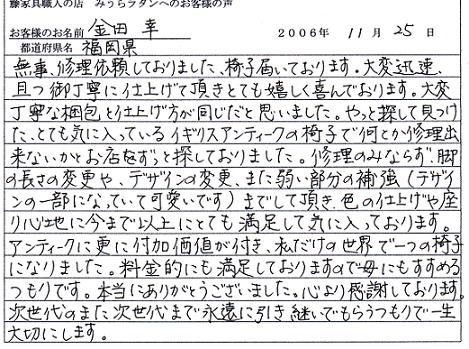 籐家具職人の店 みうらラタンへのお客様の声
お客様のお名前 金田 幸 2006年 11月 25日
都道府県名 福岡県
無事、修理依頼しておりました、椅子届いております。大変迅速、
且つ御丁寧に仕上げて頂きとても嬉しく喜んでおります。大変
丁寧な梱包と仕上げ方が同じだと思いました。やっと探して見つけ
た、とても気に入っているイギリスアンティークの椅子で何とか修理出
来ないかとお店をずっと探しておりました。修理のみならず、脚
の長さの変更や、デザインの変更、また弱い部分の補強(デザイ
ンの一部になっていて可愛いです)までして頂き、色の仕上げや座
り心地に今まで以上にとても満足して気に入っております。
アンティークに更に付加価値が付き、私だけの世界で一つの椅子
になりました。料金的にも満足しておりますので母にもすすめる
つもりです。本当にありがとうございました。心より感謝しております。
次世代のまた次世代まで永遠に引き継いでもらうつもりで一生
大切にします。